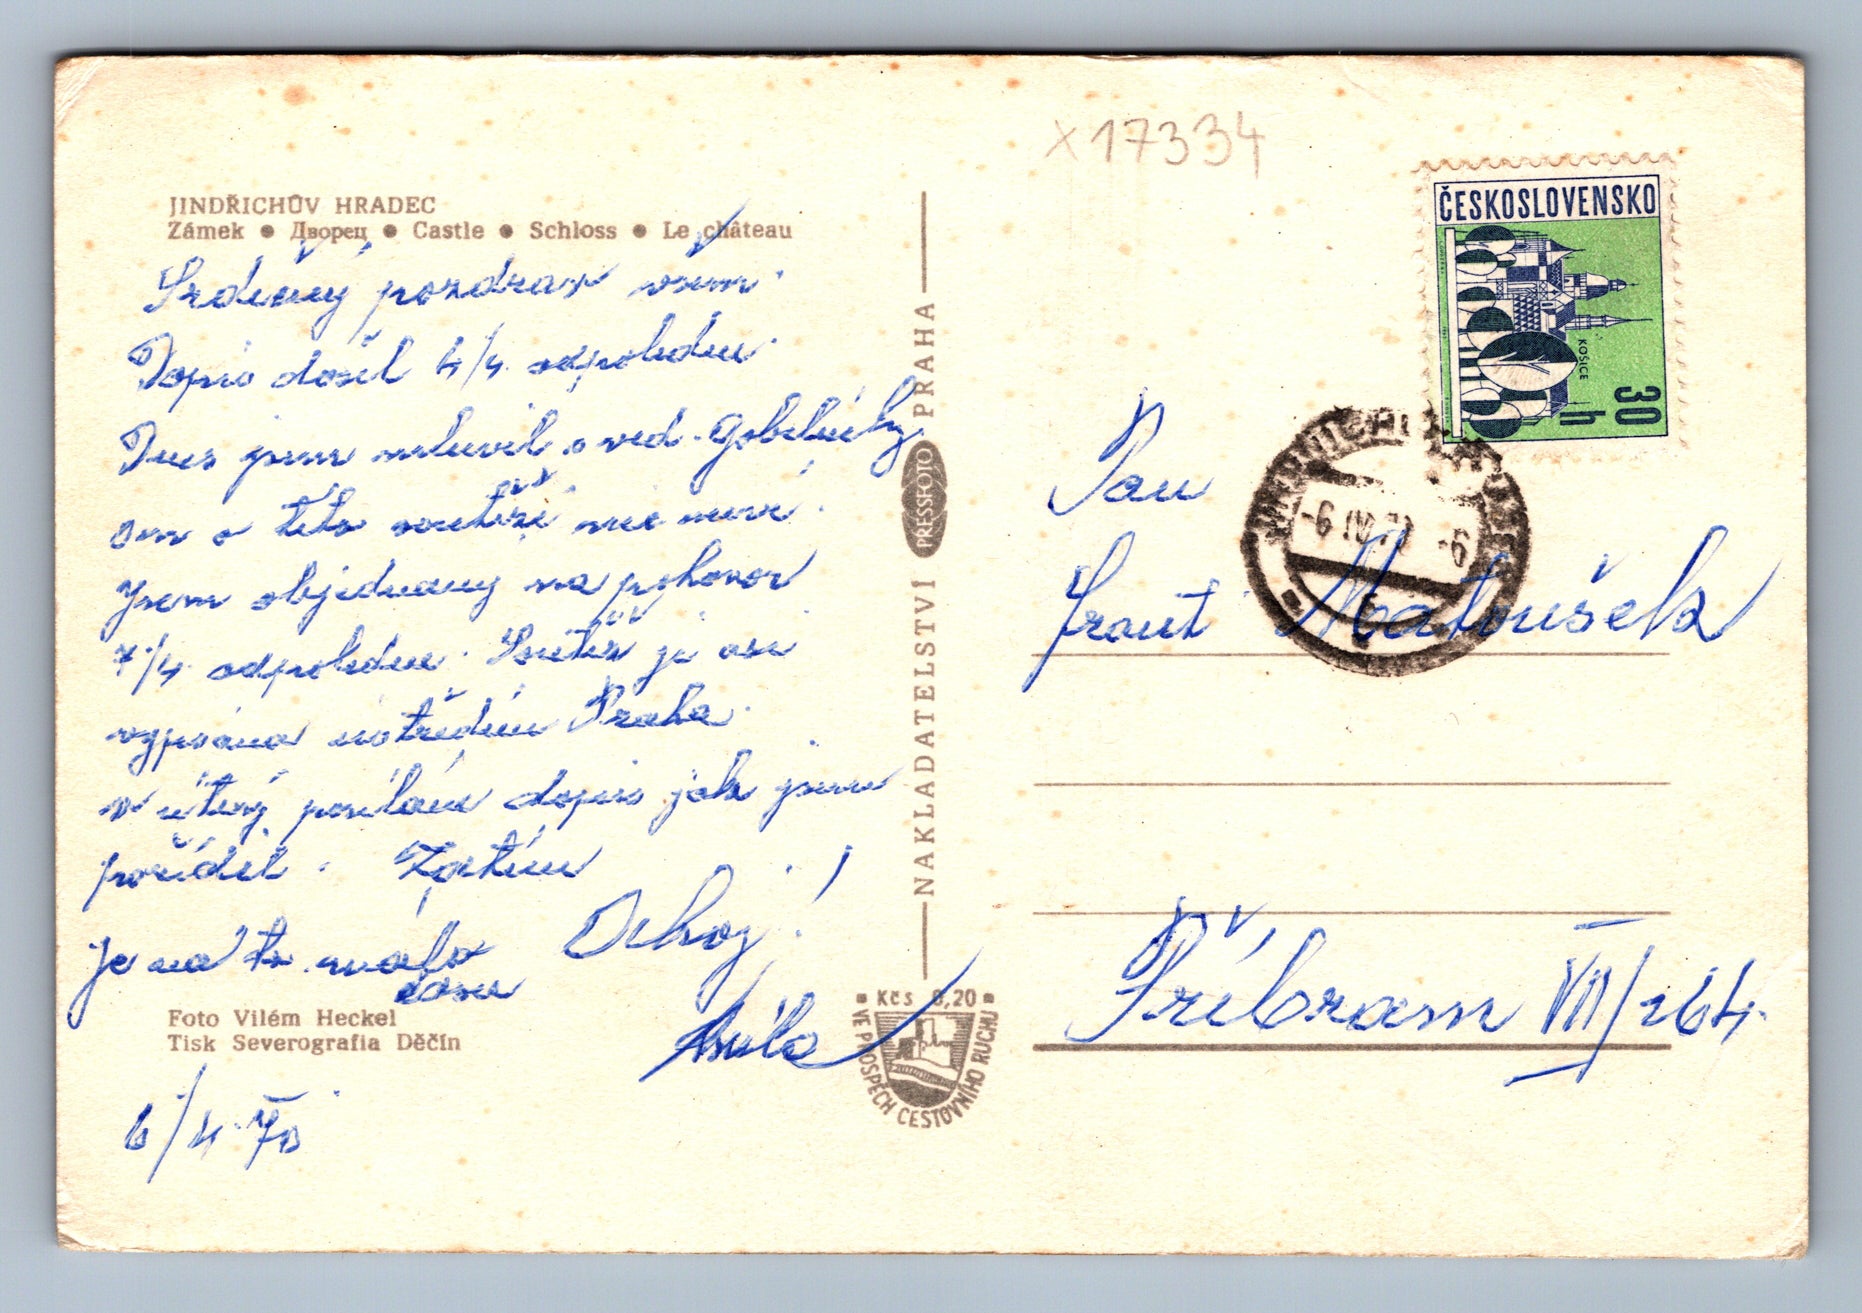 JINDŘICHŮV HRADEC
Zámek • Дворец • Castle • Schloss • Le château
Srdečný pozdrav všem.
Dopis došel 4/4. odpoledne.
Dnes jsem mluvil s ved. Gobelínky.
on o této soutěži nic neví.
Jsem objednaný na pohovor
7/4. odpoledne. Soutěž je asi
vypsána ústředím Praha.
v úterý posílám dopis jak jsem
pořídil. Zatím
Je na to málo
času
Ahoj!
Míla
Foto Vilém Heckel
Tisk Severografia Děčín
6/4. 70
NAKLADATELSTVÍ PRESSFOTO PRAHA
Kčs 0,20
VE PROSPĚCH CESTOVNÍHO RUCHU
x17334
ČESKOSLOVENSKO
KOŠICE
30
h
Pan
Frant Matoušek
Příbram VII/264.